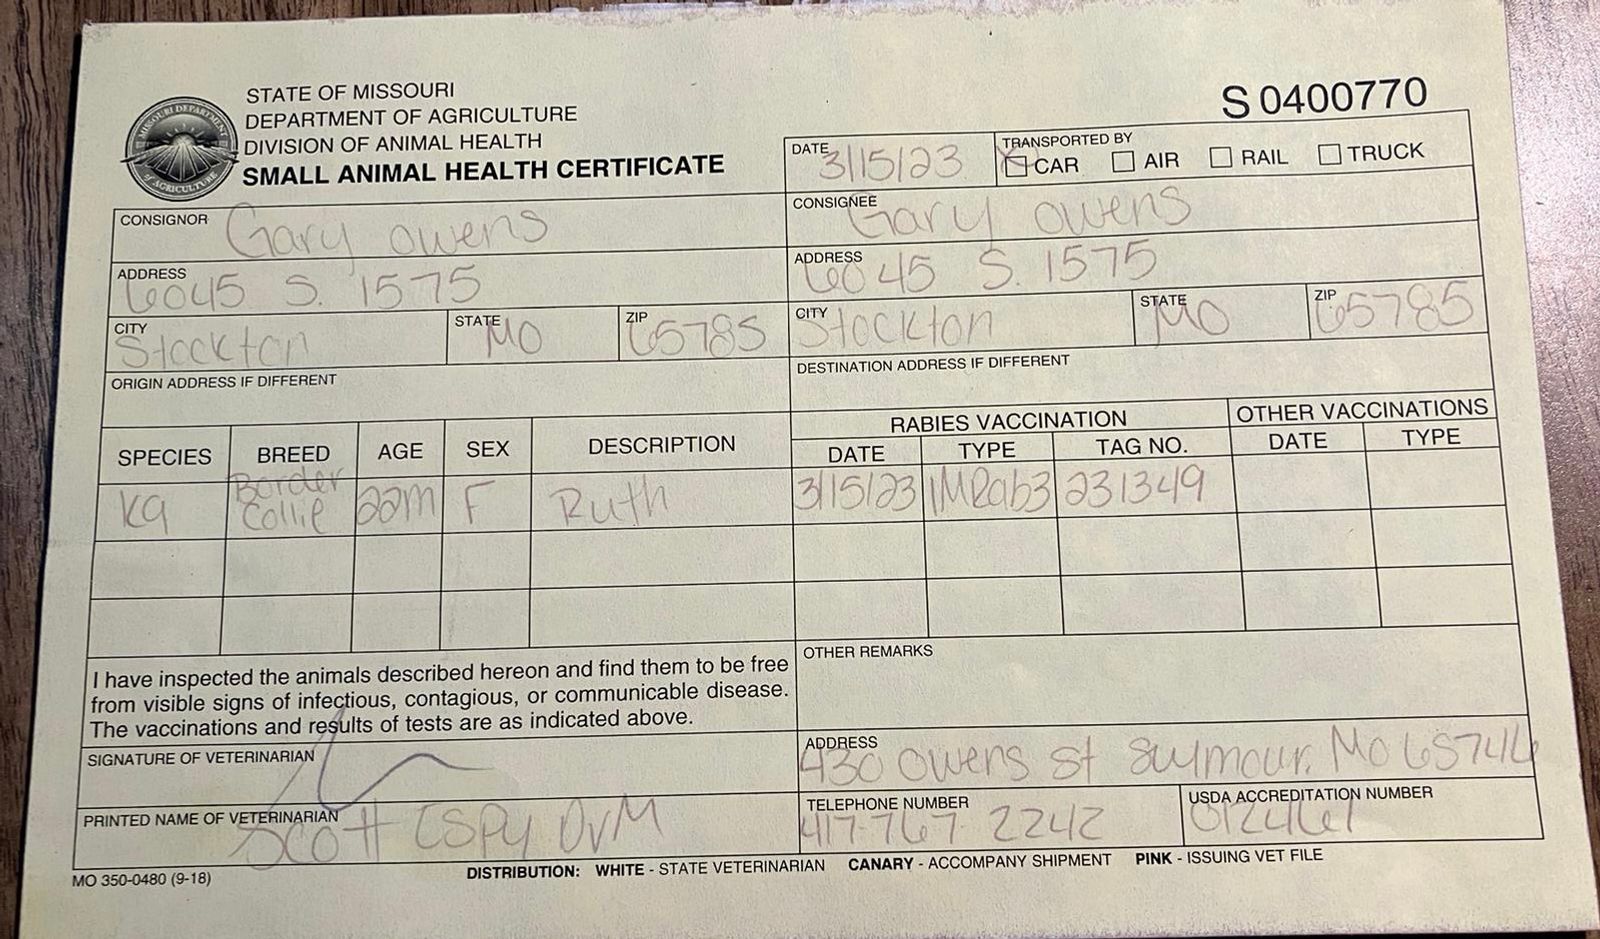 STATE OF MISSOURI
DEPARTMENT OF AGRICULTURE
DIVISION OF ANIMAL HEALTH
SMALL ANIMAL HEALTH CERTIFICATE
MISSOURI DEPARTMENT of AGRICULTURE
S 0400770
DATE 3/15/23
TRANSPORTED BY
CAR AIR RAIL TRUCK
CONSIGNOR Gary Owens
CONSIGNEE Gary Owens
ADDRESS 6045 S. 1575
ADDRESS 6045 S. 1575
CITY Stockton STATE MO ZIP 65785
CITY Stockton STATE MO ZIP 65785
ORIGIN ADDRESS IF DIFFERENT
DESTINATION ADDRESS IF DIFFERENT
RABIES VACCINATION OTHER VACCINATIONS
SPECIES BREED AGE SEX DESCRIPTION DATE TYPE TAG NO. DATE TYPE
K9 Border Collie 22m F Ruth 3/15/23 IMRab3 231349
I have inspected the animals described hereon and find them to be free
from visible signs of infectious, contagious, or communicable disease.
The vaccinations and results of tests are as indicated above.
OTHER REMARKS
SIGNATURE OF VETERINARIAN
ADDRESS 430 Owens St Seymour, MO 65746
PRINTED NAME OF VETERINARIAN Scott Espy DVM
TELEPHONE NUMBER 417-767-2242
USDA ACCREDITATION NUMBER
MO 350-0480 (9-18)
DISTRIBUTION: WHITE - STATE VETERINARIAN CANARY - ACCOMPANY SHIPMENT PINK - ISSUING VET FILE